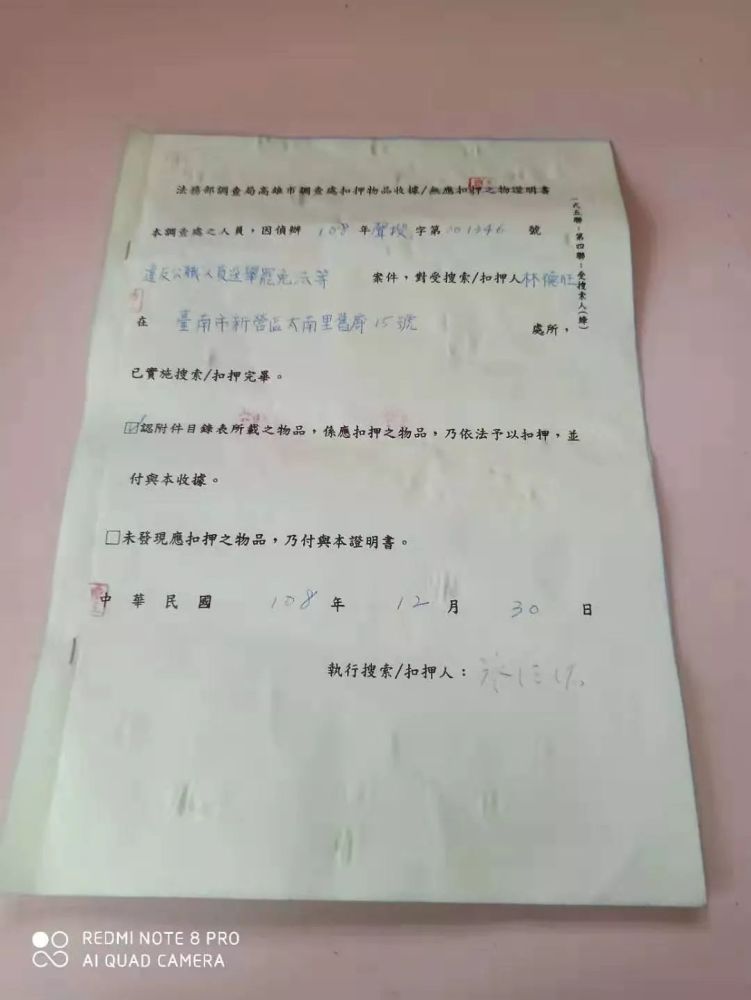 法務部調查局高雄市調查處扣押物品收據/無應扣押之物證明書
一式五聯:第四聯:受搜索人(綠)
本調查處之人員,因偵辦 108 年聲搜字第001346 號
違反公職人員選舉罷免法等 案件,對受搜索/扣押人林億旺
在 臺南市新營區太南里舊廍15號 處所,
已實施搜索/扣押完畢。
☑認附件目錄表所載之物品,係應扣押之物品,乃依法予以扣押,並
付與本收據。
□未發現應扣押之物品,乃付與本證明書。
中華民國 108 年 12 月 30 日
執行搜索/扣押人:
REDMI NOTE 8 PRO
AI QUAD CAMERA